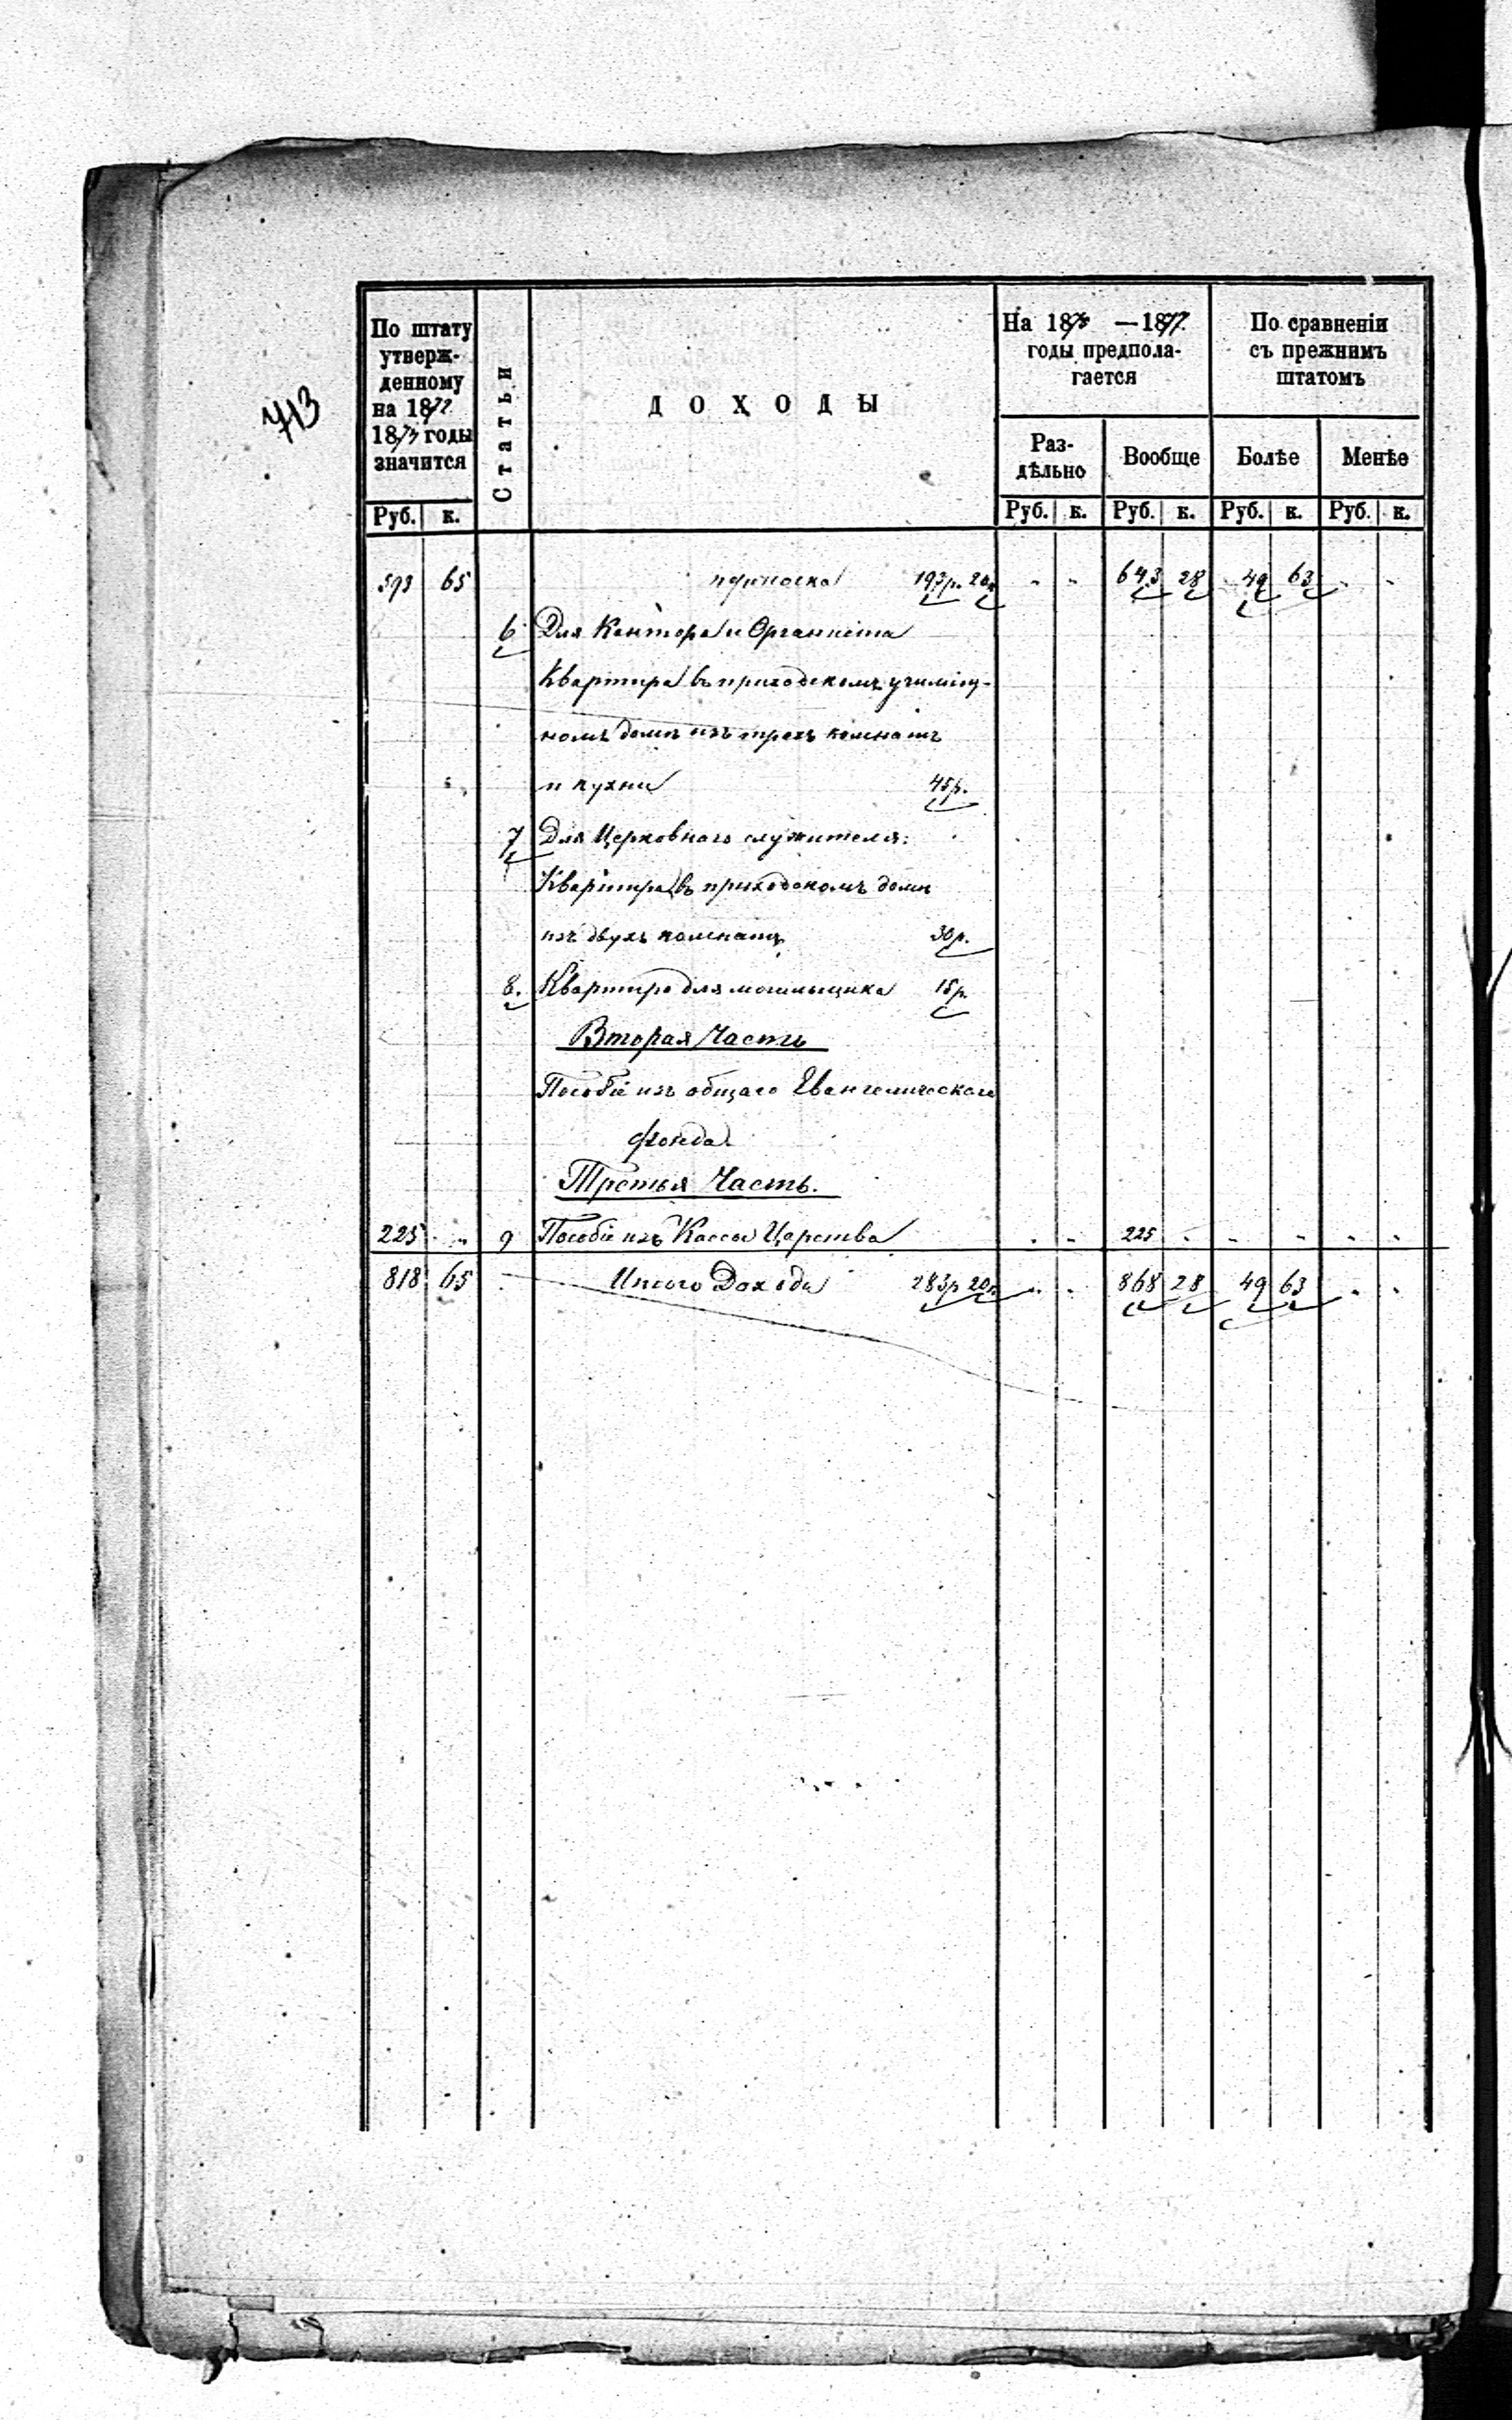 713
По штату утверж-
денному
на 1872
1874 годы
значится
Статьи
ДОХОДЫ
На 1875 —1877
годы предпола-
гается
По сравненіи
съ прежнимъ
штатомъ
Раз-
дѣльно
Вообще
Болѣе
Менѣе
Руб. к. Руб. к. Руб. к. Руб. к. Руб. к.
593 65 переноска 193р. 20к " " 643 28 49 63 " "
6 Для Кантора и Органиста
Квартира въ приходскомъ училищ-
номъ домѣ изъ трехъ комнатъ
и кухни 45р.
7 Для Церковнаго служителя:
Квартира въ приходскомъ домѣ
изъ двухъ комнатъ 30р.
8. Квартира для могильщика 15р.
Вторая Часть
Пособіе изъ общаго Евангелическаго
фонда.
Третья Часть.
225 " 9 Пособіе изъ Кассы Царства " " 225 " " " " "
818 65 Итого Дохода 283р 20к " " 868 28 49 63 " "